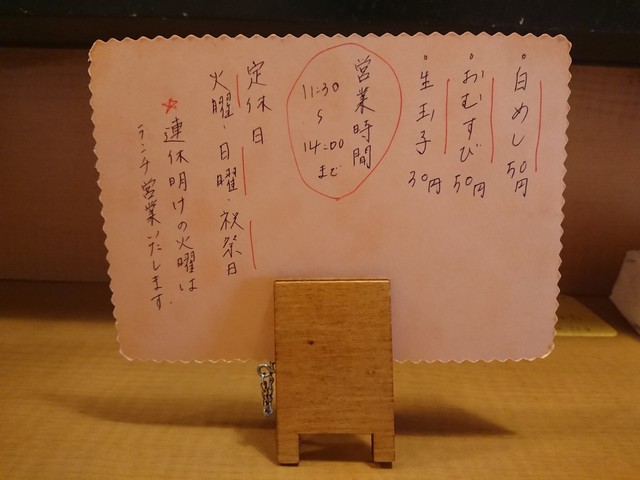 ・白めし 50円
・おむすび 50円
・生玉子 30円
営業時間
11:30
〜
14:00
まで
定休日
火曜・日曜・祝祭日
☆連休明けの火曜は
ランチ営業いたします。